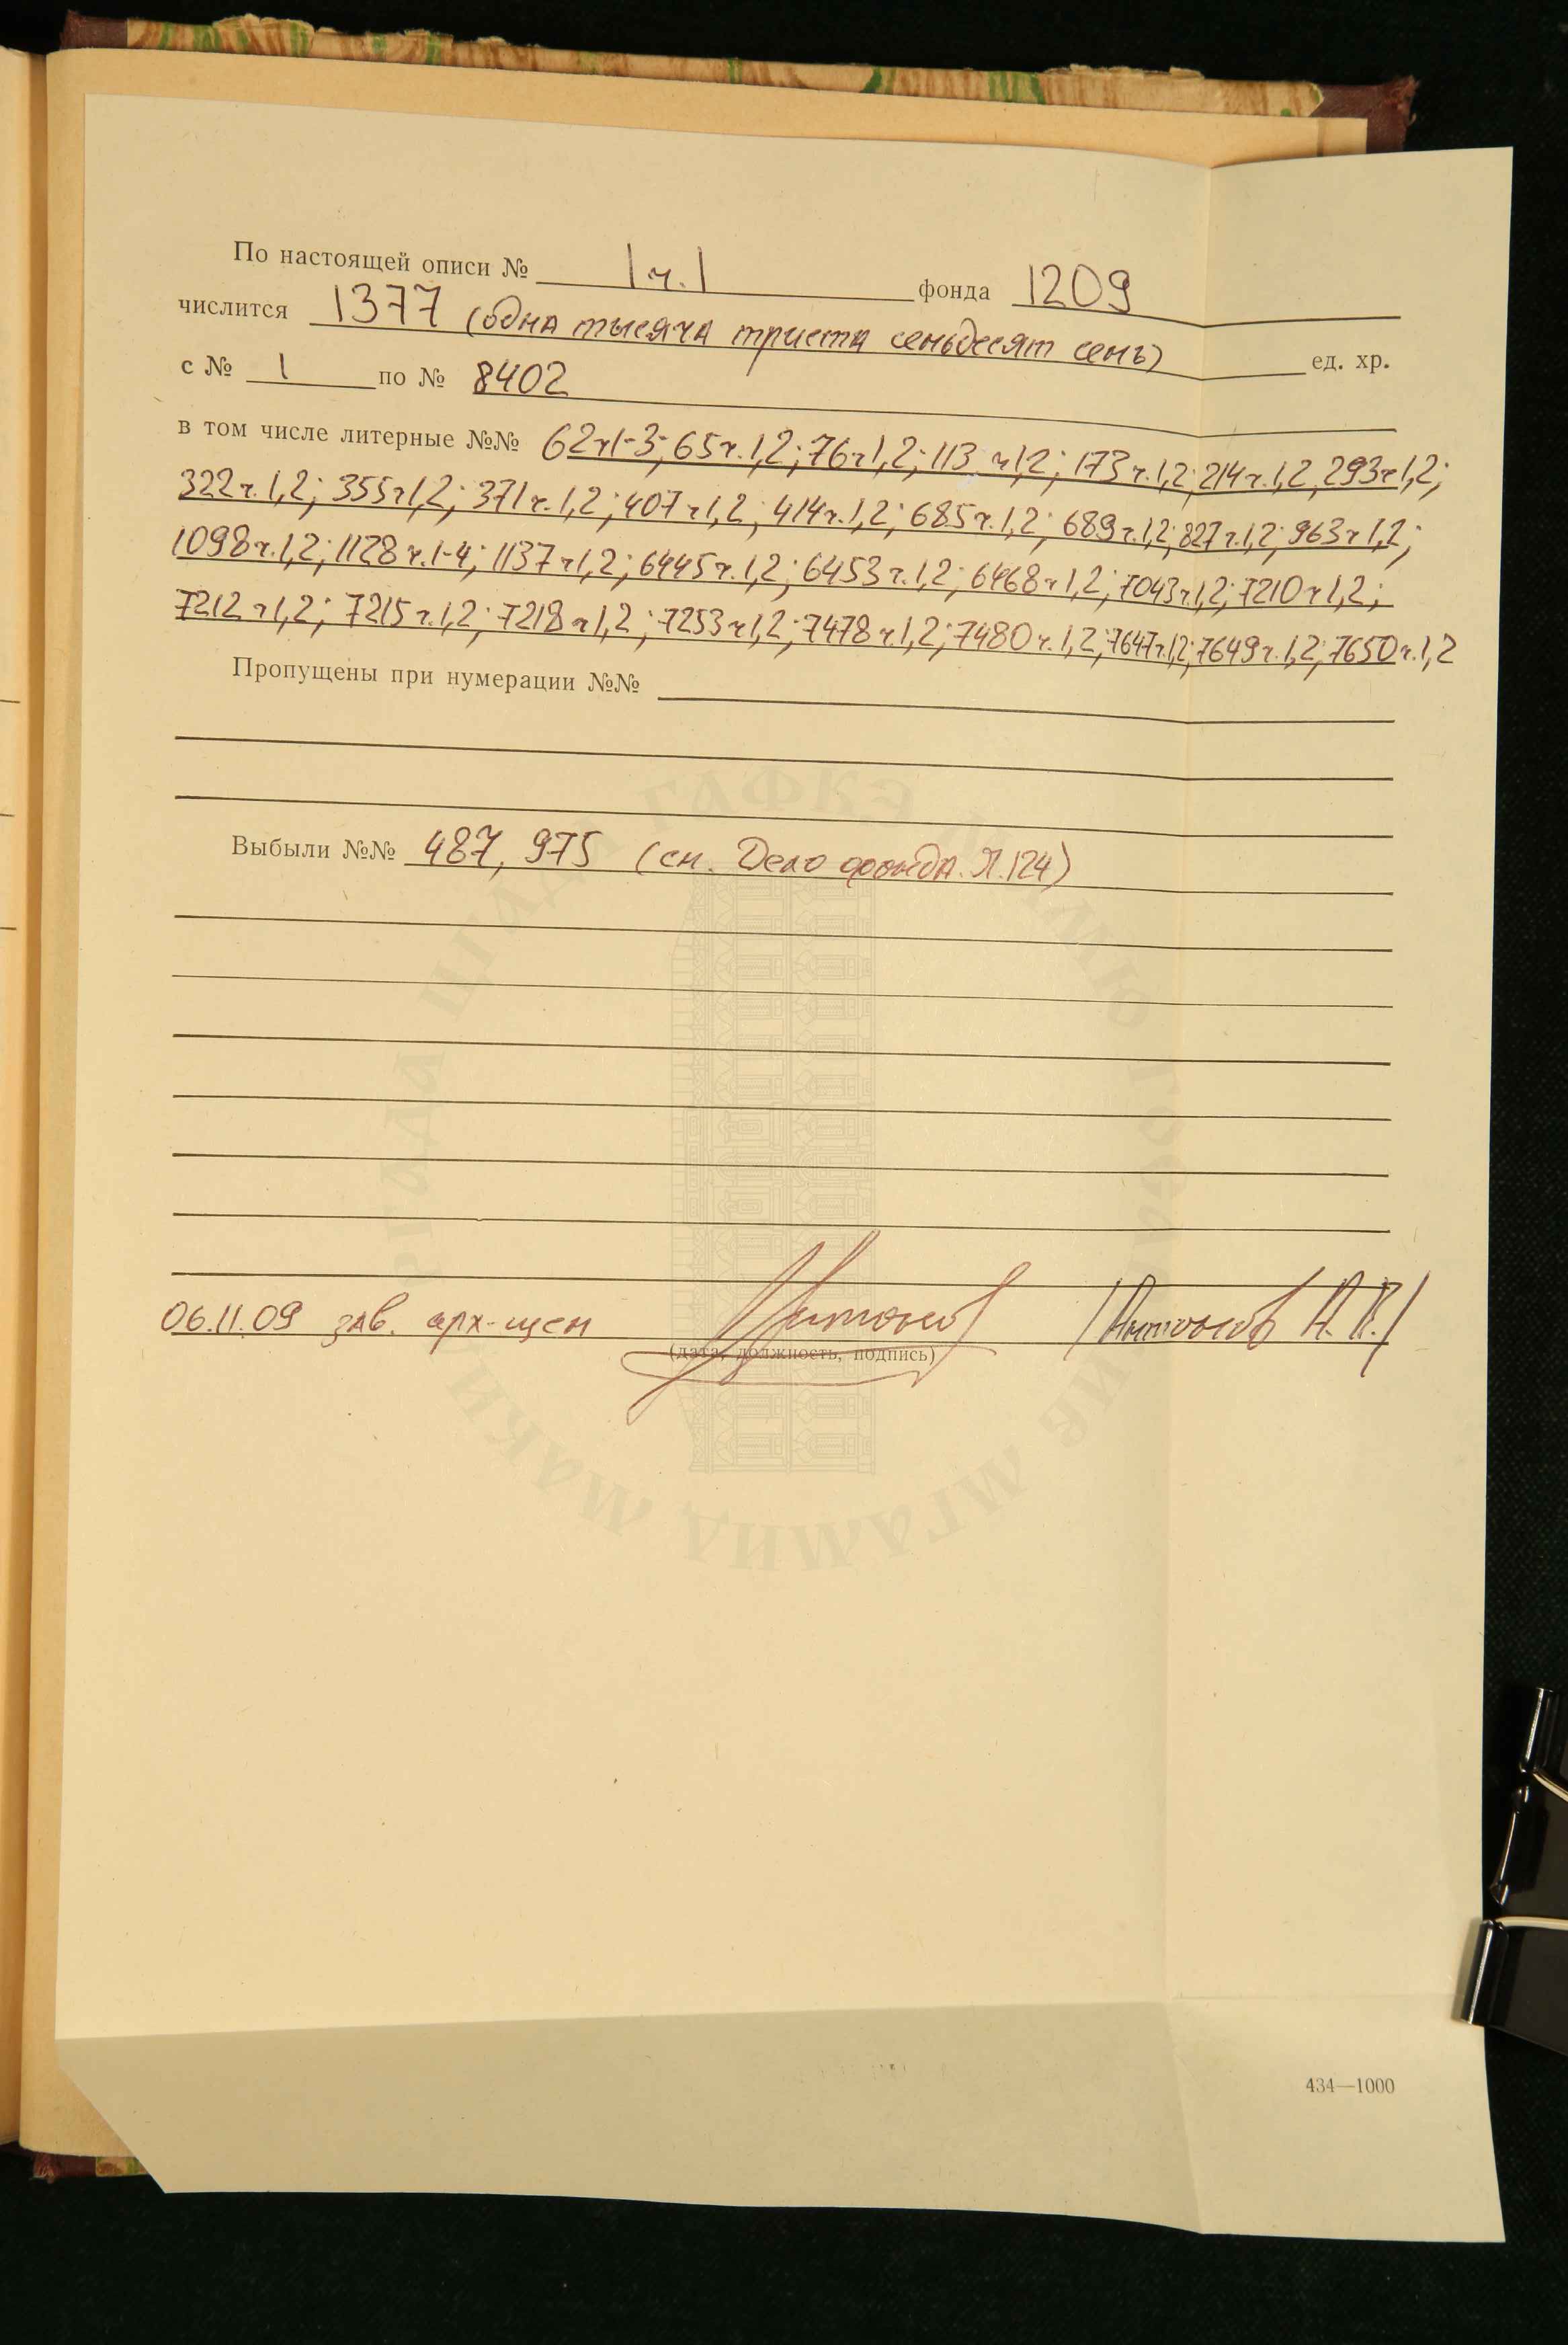 По настоящей описи № 1 ч. 1 фонда 1209
числится 1377 (одна тысяча триста семьдесят семь) ед. хр.
с № 1 по № 8402
в том числе литерные №№ 62ч1-3; 65ч.1,2; 76ч1,2; 113 ч1,2; 173ч.1,2; 214ч.1,2, 293ч1,2;
322ч.1,2; 355ч1,2; 371ч.1,2; 407ч1,2; 414ч.1,2; 685ч.1,2; 689ч.1,2; 827ч.1,2; 963ч1,2;
1098ч.1,2; 1128ч.1-4; 1137ч1,2; 6445ч.1,2; 6453ч.1,2; 6468ч1,2; 7043ч.1,2; 7210ч1,2;
7212ч1,2; 7215ч.1,2; 7218ч1,2; 7253ч1,2; 7478ч.1,2; 7480ч.1,2; 7647ч.1,2; 7649ч.1,2; 7650ч.1,2
Пропущены при нумерации №№
Выбыли №№ 487, 975 (см. Дело фонда. Л.124)
06.11.09 зав. арх-щем
(дата, должность, подпись)
434—1000